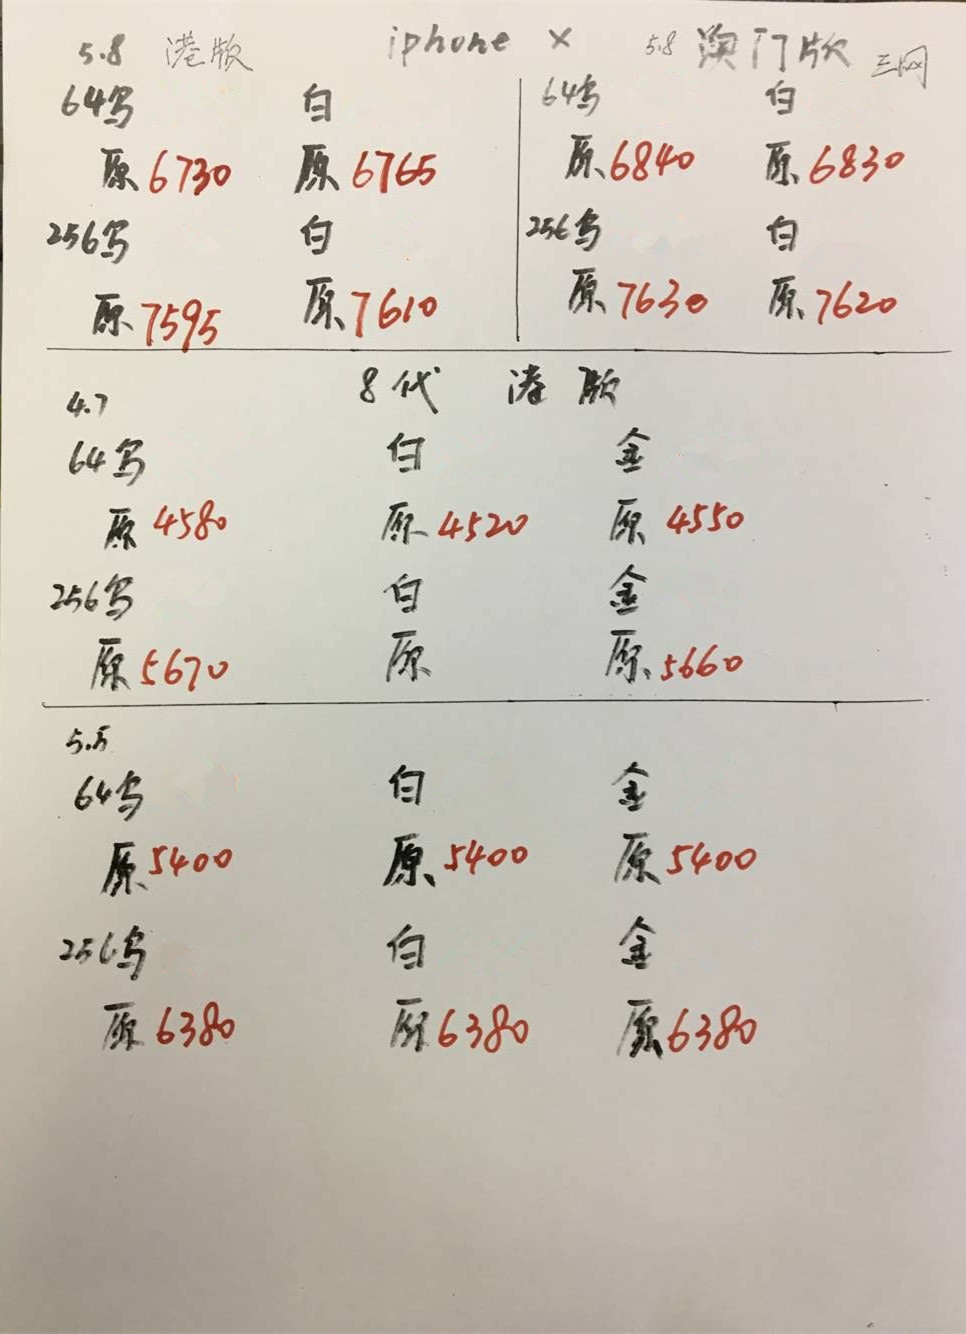 5.8 港版 iphone X 5.8 澳门版 三网
64乌 白 64乌 白
原 6730 原 6765 原 6840 原 6830
256乌 白 256乌 白
原 7595 原 7610 原 7630 原 7620
4.7 8代 港版
64乌 白 金
原 4580 原 4520 原 4550
256乌 白 金
原 5670 原 原 5660
5.5
64乌 白 金
原 5400 原 5400 原 5400
256乌 白 金
原 6380 原 6380 原 6380